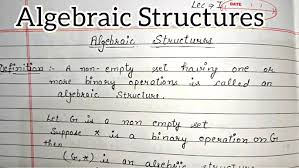 Lec → I
DATE
Algebraic Structures
Algebraic Structures
Definition :- A non-empty set having one or
more binary operations is called an
algebraic structure.
Let G is a non empty set
Suppose * is a binary operation on G
then
(G, *) is an algebraic